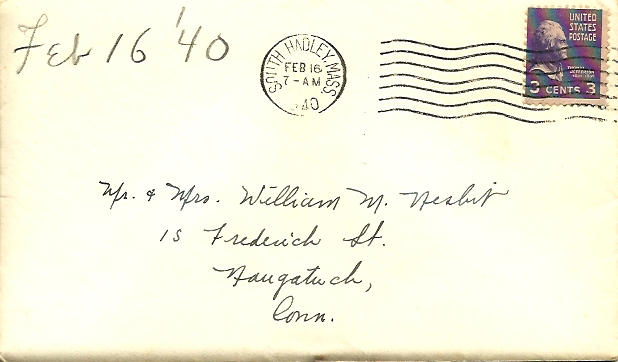 Feb 16 '40
SOUTH HADLEY, MASS.
FEB 16
7 - AM
40
UNITED
STATES
POSTAGE
THOMAS
JEFFERSON
3 CENTS 3
Mr. & Mrs. William M. Nesbit
15 Frederick St.
Naugatuck,
Conn.